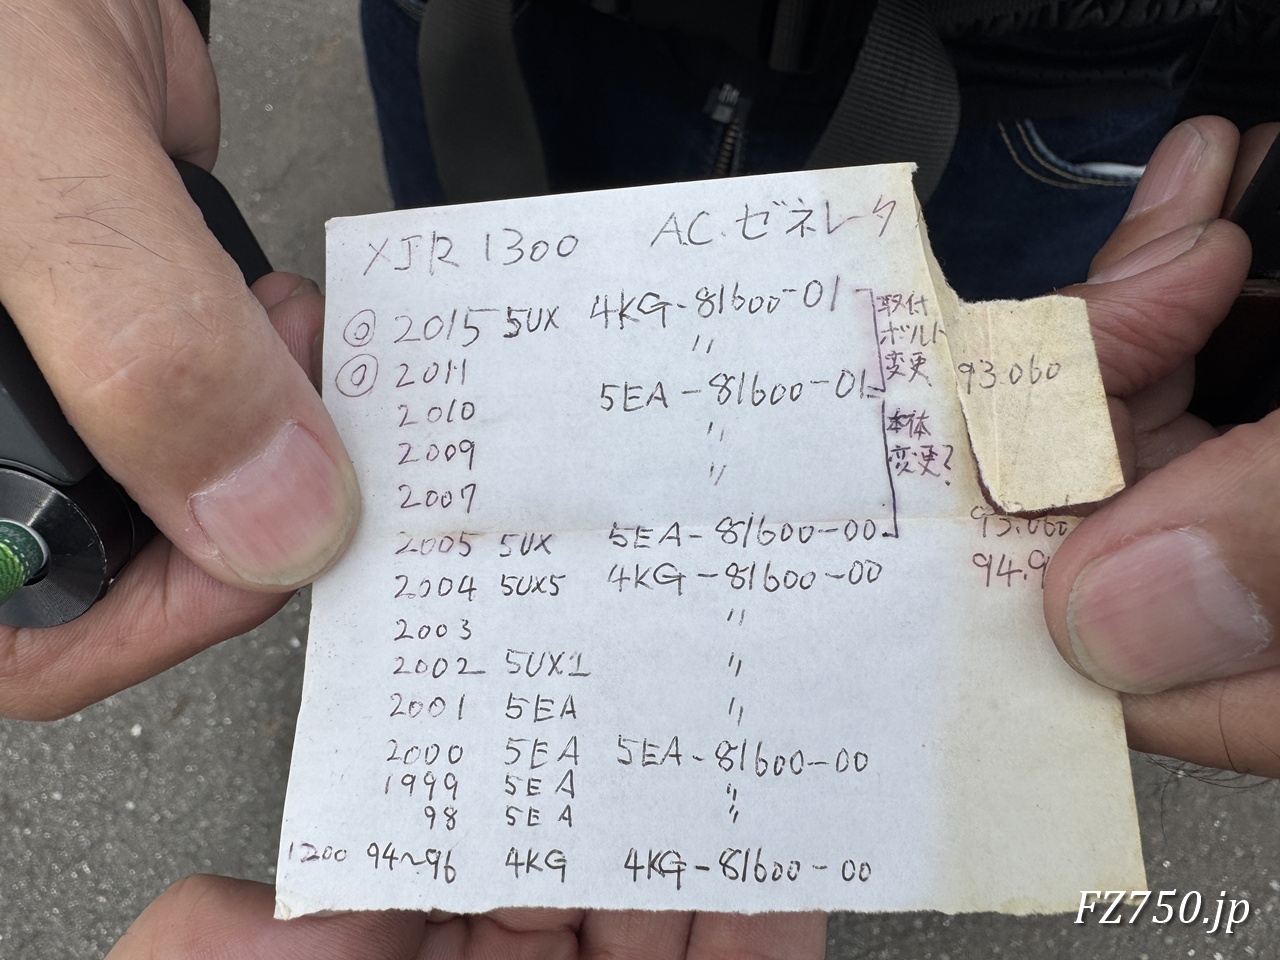 XJR 1300 A.C.ゼネレタ
◎ 2015 5UX 4KG-81600-01
◎ 2011 〃
2010 5EA-81600-01
2009 〃
2007 〃
2005 5UX 5EA-81600-00
2004 5UX5 4KG-81600-00
2003 〃
2002 5UX1 〃
2001 5EA 〃
2000 5EA 5EA-81600-00
1999 5EA 〃
98 5EA 〃
1200 94~96 4KG 4KG-81600-00
取付
ボルト
変更
本体
変更?
93.060
93.060
94.9
FZ750.jp